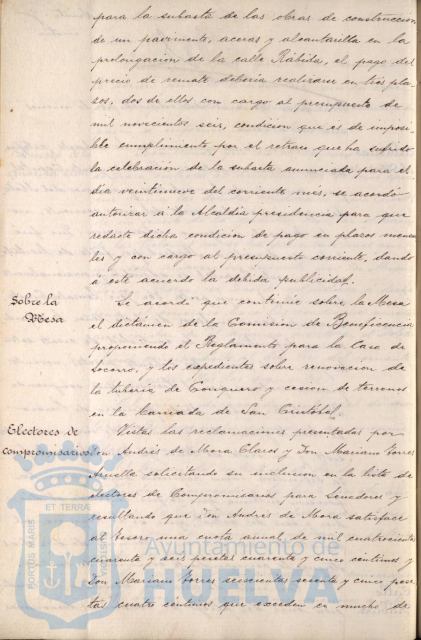 para la subasta de las obras de construccion
de un pavimento, aceras y alcantarilla en la
prolongacion de la calle Rábida, el pago del
precio de remate debería realizarse en tres pla-
sos, dos de ellos con cargo al presupuesto de
mil novecientos seis, condicion que es de imposi-
ble cumplimiento por el retraso que ha sufrido
la celebración de la subasta anunciada para el
dia veintinueve del corriente mes, se acordó
autorizar á la Alcaldía presidencia para que
redacte dicha condicion de pago en plazos mensua-
les y con cargo al presupuesto corriente, dando
á este acuerdo la debida publicidad.
Sobre la
Mesa
Se acordó que continúe sobre la Mesa
el dictámen de la Comision de Beneficencia
proponiendo el Reglamento para la Casa de
Socorro, y los expedientes sobre renovacion de
la tuberia de Conquero y cesion de terrenos
en la Barriada de San Cristóbal.
Electores de
compromisarios
Vistas las reclamaciones presentadas por
Don Andrés de Mora Claros y Don Mariano Torres
solicitando su inclusion en la lista de
electores de Compromisarios para Senadores y
resultando que Don Andrés de Mora satisface
al Tesoro una cuota anual de mil cuatrocientas
cuarenta y seis pesetas cuarenta y cinco céntimos y
Don Mariano Torres seiscientas sesenta y cinco pese-
tas cuatro céntimos que exceden en mucho de
PORTUS MARIS
ET TERRÆ
CUSTODIA
Ayuntamiento de
HUELVA